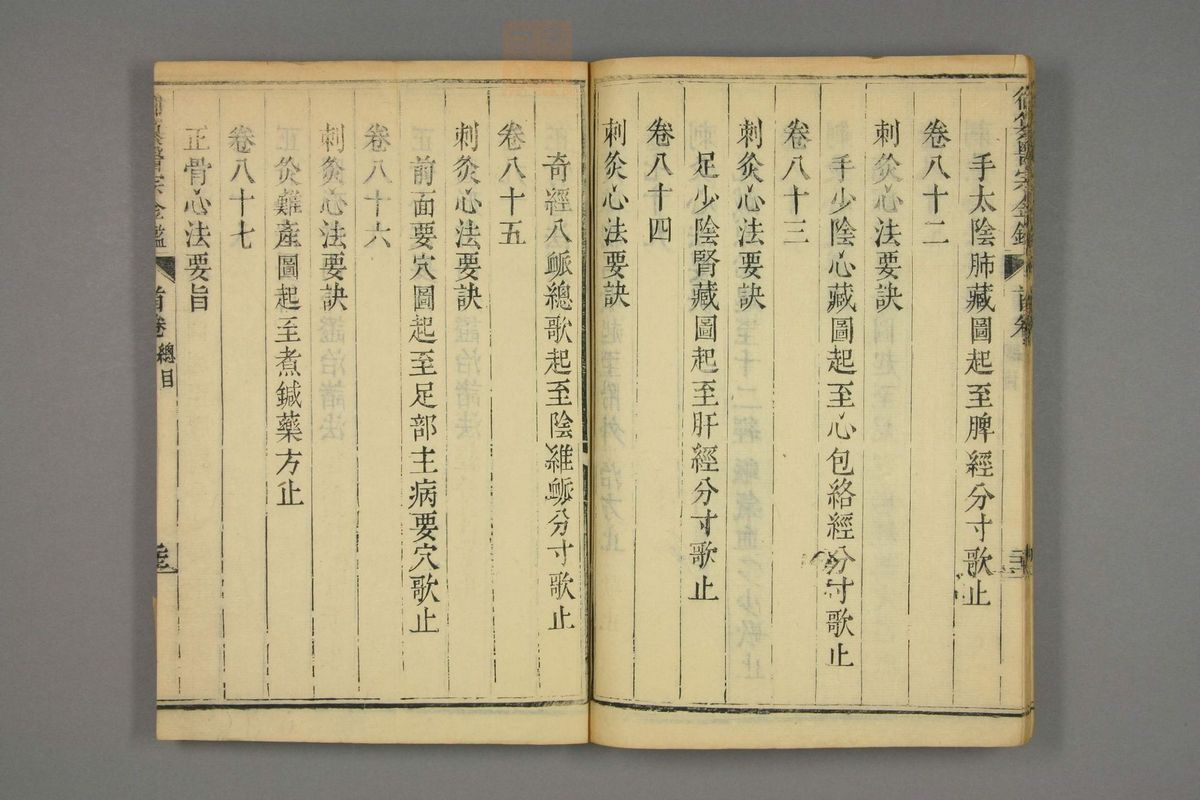 御纂醫宗金鑑 首卷
手太陰肺藏圖起至脾經分寸歌止
卷八十二
刺灸心法要訣
手少陰心藏圖起至心包絡經分寸歌止
卷八十三
刺灸心法要訣
足少陰腎藏圖起至肝經分寸歌止
卷八十四
刺灸心法要訣
奇經八衇總歌起至陰維衇分寸歌止
卷八十五
刺灸心法要訣
前面要穴圖起至足部主病要穴歌止
卷八十六
刺灸心法要訣
灸難產圖起至煮鍼藥方止
卷八十七
正骨心法要旨
御纂醫宗金鑑 首卷 總目